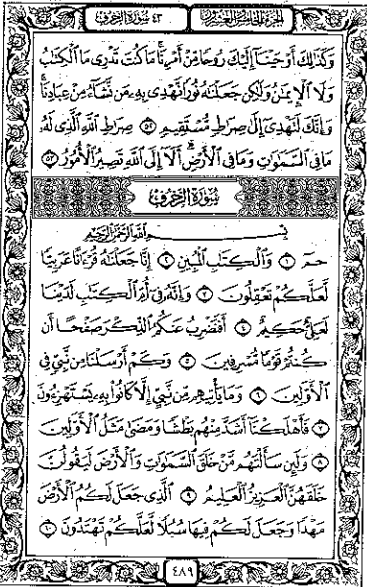 الجزء الخامس والعشرون
٤٣ سورة الزخرف
وَكَذَٰلِكَ أَوْحَيْنَآ إِلَيْكَ رُوحًا مِّنْ أَمْرِنَا مَا كُنتَ تَدْرِى مَا ٱلْكِتَٰبُ
وَلَا ٱلْإِيمَٰنُ وَلَٰكِن جَعَلْنَٰهُ نُورًا نَّهْدِى بِهِۦ مَن نَّشَآءُ مِنْ عِبَادِنَا
وَإِنَّكَ لَتَهْدِىٓ إِلَىٰ صِرَٰطٍ مُّسْتَقِيمٍ ٥٢ صِرَٰطِ ٱللَّهِ ٱلَّذِى لَهُۥ
مَا فِى ٱلسَّمَٰوَٰتِ وَمَا فِى ٱلْأَرْضِ أَلَآ إِلَى ٱللَّهِ تَصِيرُ ٱلْأُمُورُ ٥٣
سورة الزخرف
بِسْمِ ٱللَّهِ ٱلرَّحْمَٰنِ ٱلرَّحِيمِ
حمٓ ١ وَٱلْكِتَٰبِ ٱلْمُبِينِ ٢ إِنَّا جَعَلْنَٰهُ قُرْءَٰنًا عَرَبِيًّا
لَّعَلَّكُمْ تَعْقِلُونَ ٣ وَإِنَّهُۥ فِىٓ أُمِّ ٱلْكِتَٰبِ لَدَيْنَا
لَعَلِىٌّ حَكِيمٌ ٤ أَفَنَضْرِبُ عَنكُمُ ٱلذِّكْرَ صَفْحًا أَن
كُنتُمْ قَوْمًا مُّسْرِفِينَ ٥ وَكَمْ أَرْسَلْنَا مِن نَّبِىٍّ فِى
ٱلْأَوَّلِينَ ٦ وَمَا يَأْتِيهِم مِّن نَّبِىٍّ إِلَّا كَانُوا۟ بِهِۦ يَسْتَهْزِءُونَ
٧ فَأَهْلَكْنَآ أَشَدَّ مِنْهُم بَطْشًا وَمَضَىٰ مَثَلُ ٱلْأَوَّلِينَ
٨ وَلَئِن سَأَلْتَهُم مَّنْ خَلَقَ ٱلسَّمَٰوَٰتِ وَٱلْأَرْضَ لَيَقُولُنَّ
خَلَقَهُنَّ ٱلْعَزِيزُ ٱلْعَلِيمُ ٩ ٱلَّذِى جَعَلَ لَكُمُ ٱلْأَرْضَ
مَهْدًا وَجَعَلَ لَكُمْ فِيهَا سُبُلًا لَّعَلَّكُمْ تَهْتَدُونَ ١٠
٤٨٩